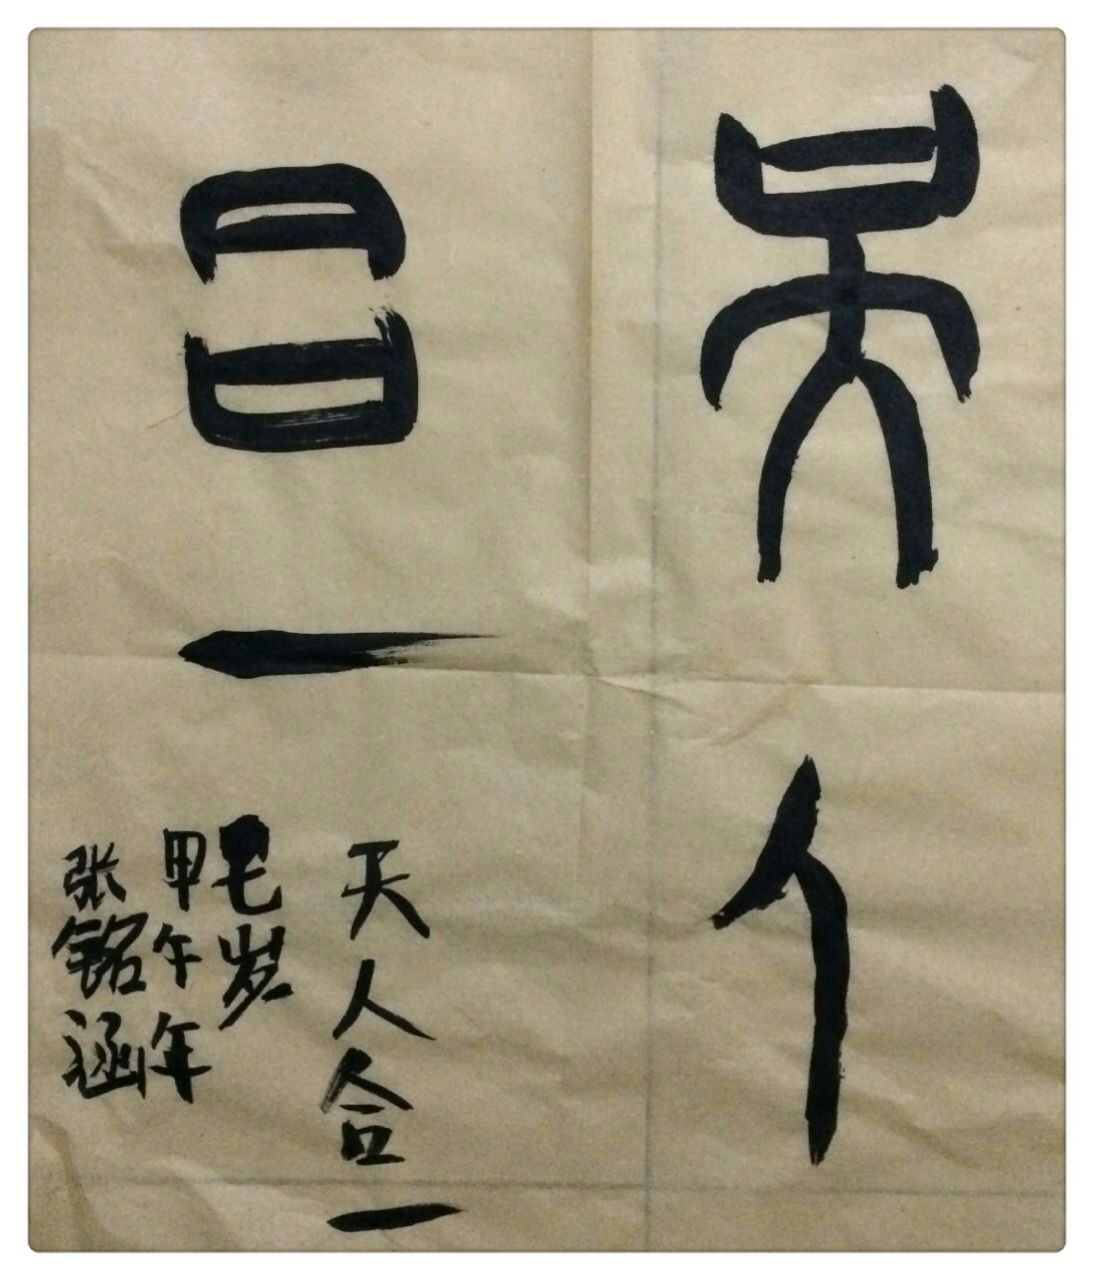 天人
合一
天人合一
七岁
甲午年
张铭涵